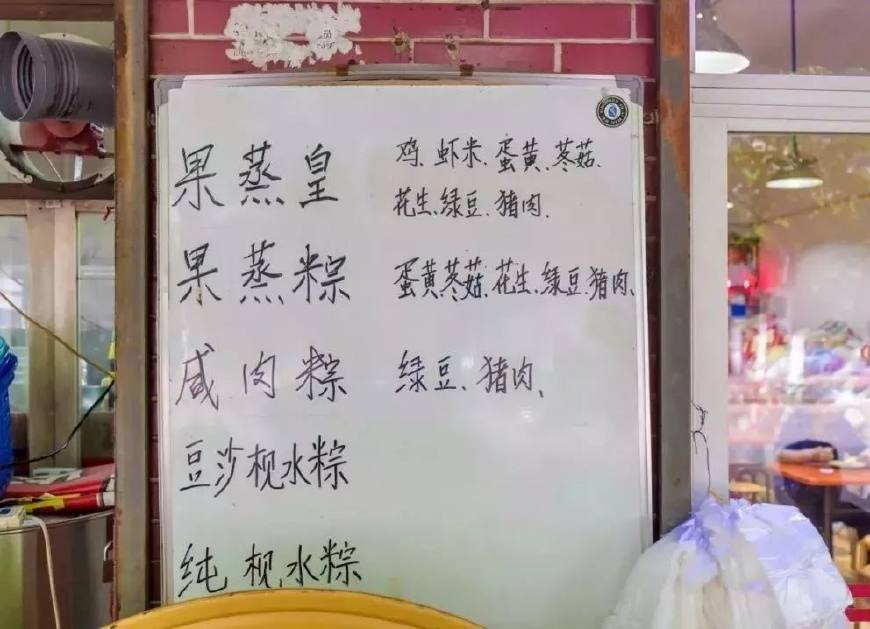 果蒸皇 鸡、虾米、蛋黄、苳菇、
花生、绿豆、猪肉、
果蒸粽 蛋黄、苳菇、花生、绿豆、猪肉、
咸肉粽 绿豆、猪肉、
豆沙枧水粽
纯枧水粽